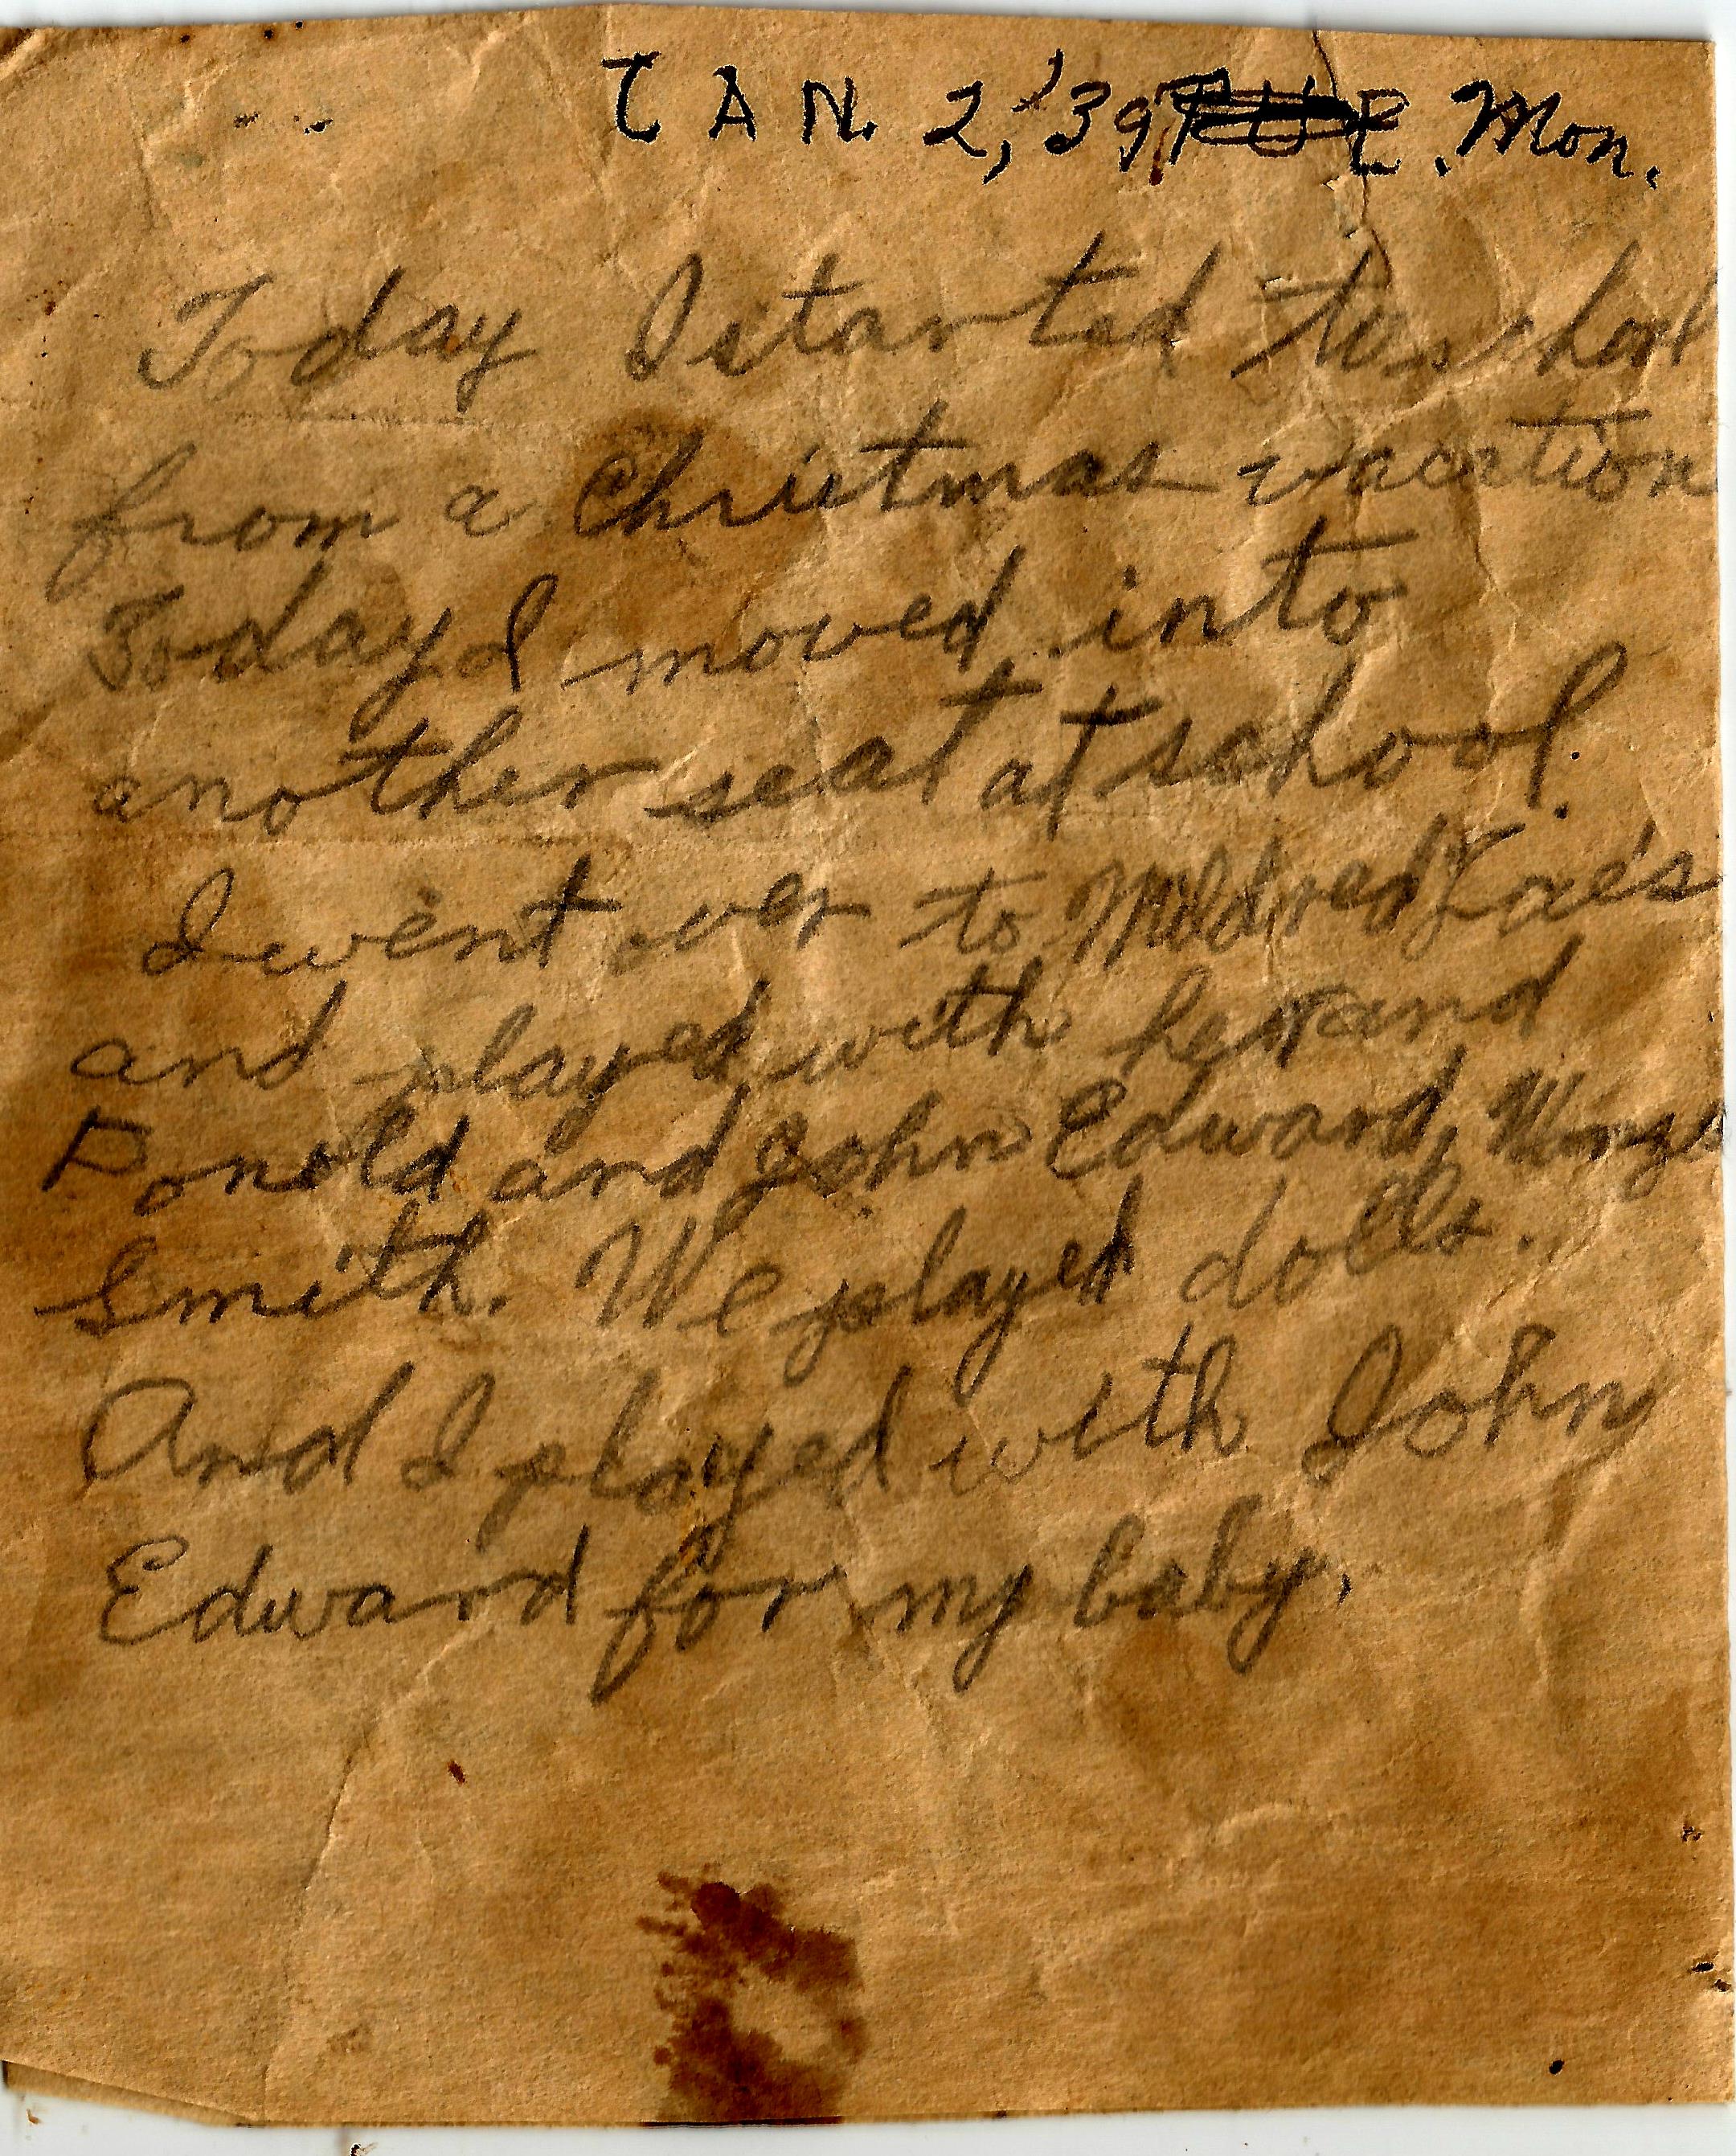 JAN. 2, '39 TUE. Mon.
Today I started to school
from a Christmas vacation
Today I moved into
another seat at school.
I went over to Mildred
and played with her and
Donold and John Edward,
Smith. We played dolls.
And I played with John
Edward for my baby.